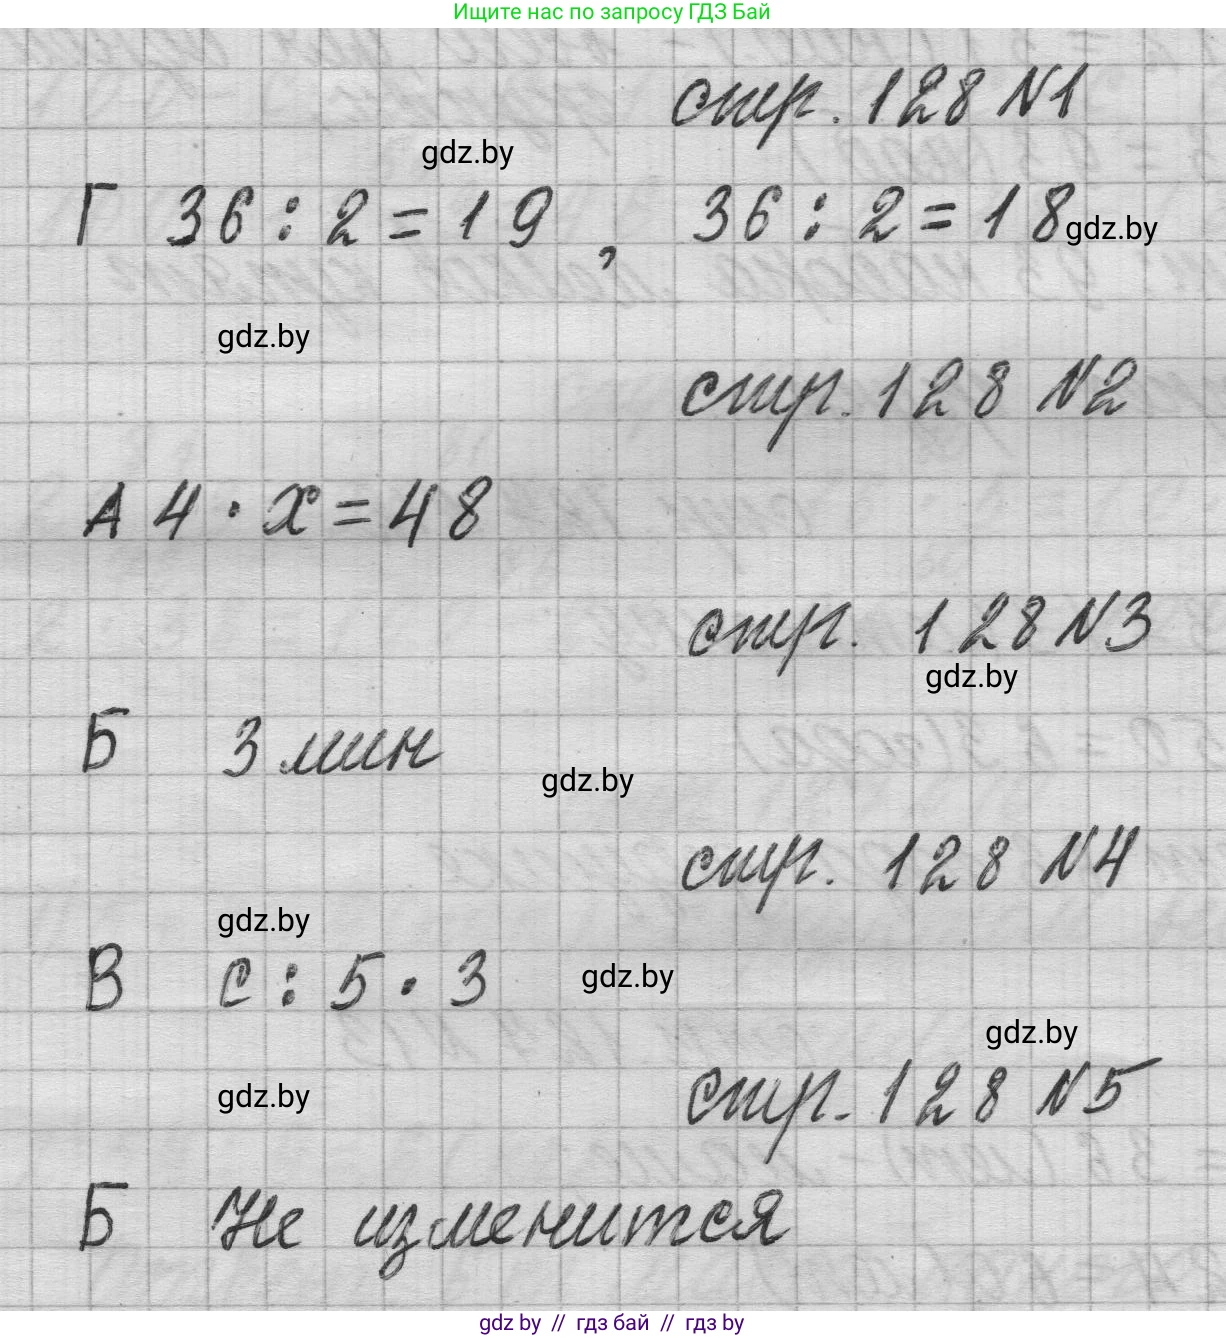 Ищите нас по запросу ГДЗ Бай
стр. 128 №1
gdz.by
Г 36 : 2 = 19 , 36 : 2 = 18
gdz.by
gdz.by
стр. 128 №2
А 4 · x = 48
стр. 128 №3
gdz.by
Б 3 мин
gdz.by
стр. 128 №4
gdz.by
В с : 5 · 3
gdz.by
gdz.by
gdz.by
стр. 128 №5
Б Не изменится
gdz.by // гдз бай // гдз by